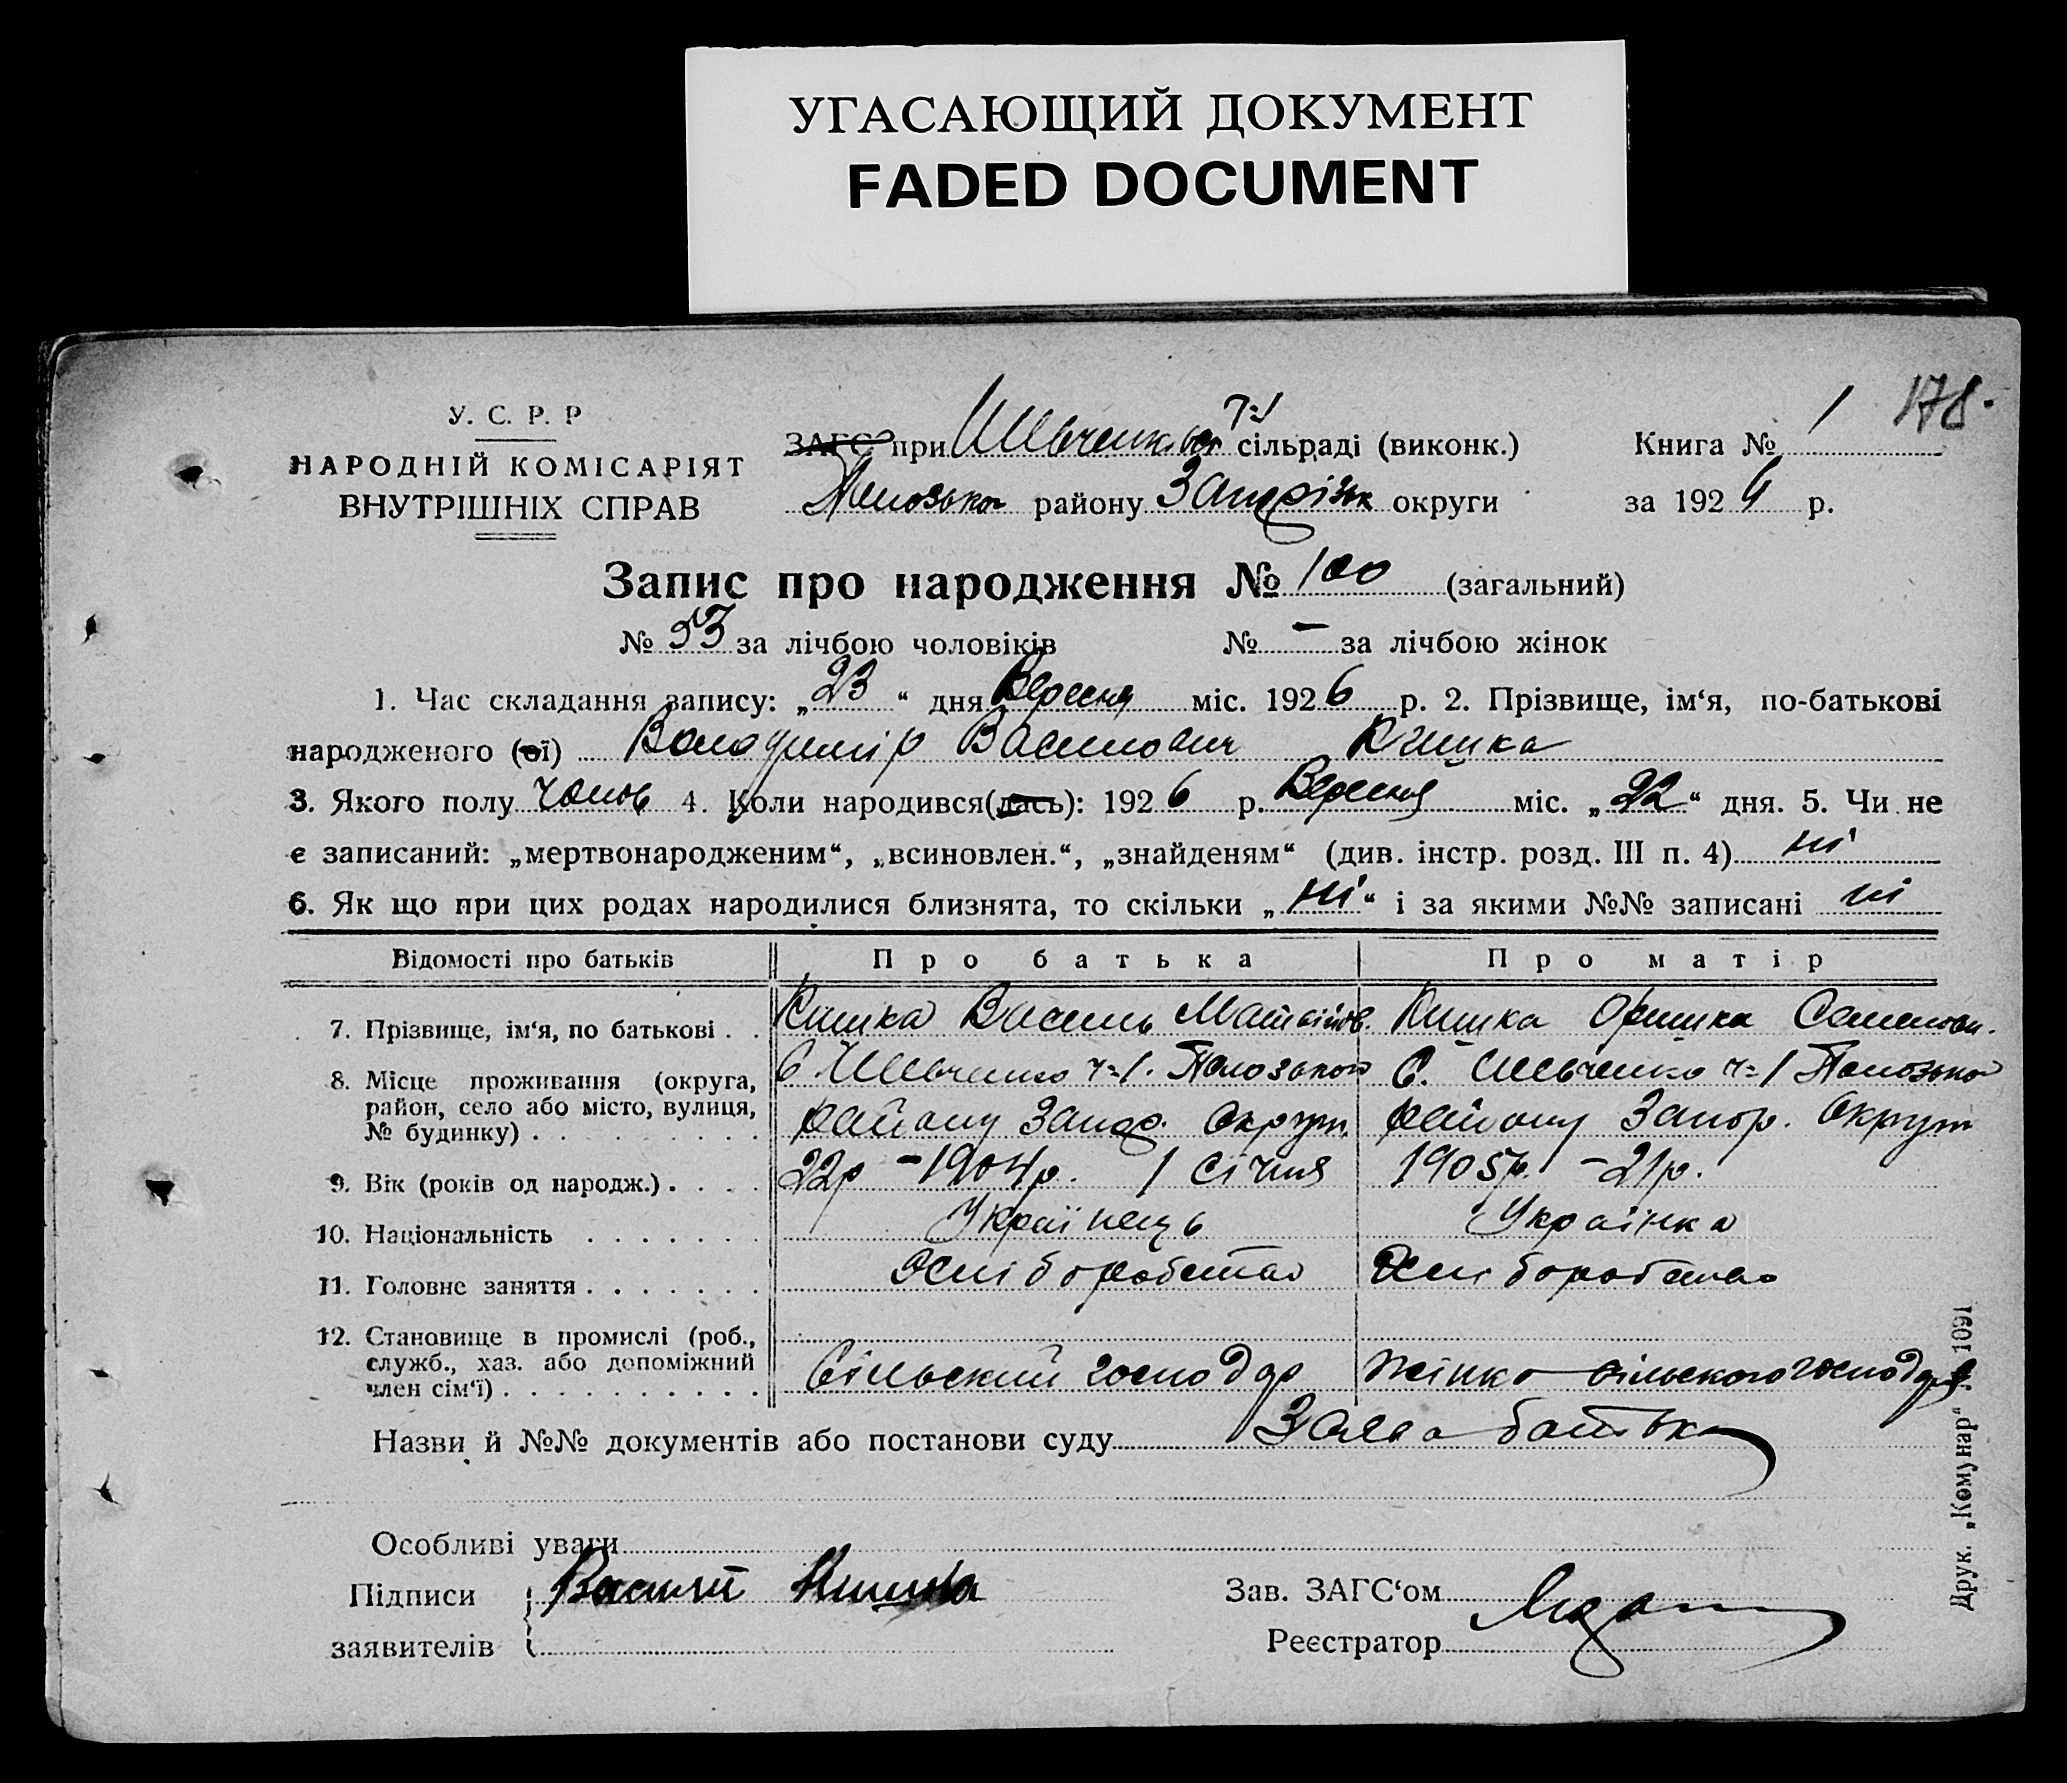 УГАСАЮЩИЙ ДОКУМЕНТ
FADED DOCUMENT
178.
У. С. Р. Р
НАРОДНІЙ КОМІСАРІЯТ
ВНУТРІШНІХ СПРАВ
ЗАГС при Шевченківс ч=1 сільраді (виконк.)
Полозьког району Запоріжк округи
Книга № 1
за 1926 р.
Запис про народження № 100 (загальний)
№ 53 за лічбою чоловіків № — за лічбою жінок
1. Час складання запису: „23“ дня Вересня міс. 1926 р. 2. Прізвище, ім‘я, по-батькові
народженого (ої) Володимір Василович Кишка
3. Якого полу чолов 4. Коли народився(лась): 1926 р. Вересня міс. „22“ дня. 5. Чи не
є записаний: „мертвонародженим“, „всиновлен.“, „знайденям“ (див. інстр. розд. III п. 4) ні
6. Як що при цих родах народилися близнята, то скільки „ні“ і за якими №№ записані ні
Відомості про батьків Про батька Про матір
7. Прізвище, ім‘я, по батькові . . Кишка Василь Матвійов. Кишка Оришка Семеновн.
8. Місце проживання (округа, район, село або місто, вулиця, № будинку) . . . . . . . . .
С. Шевченко ч=1. Полозького С. Шевченко ч=1 Полозького
району Запор. Округи району Запор. Округи
9. Вік (років од народж.) . . . . 22р – 1904р. 1 Січня 1905р. – 21р.
10. Національність . . . . . . . Українець Українка
11. Головне заняття . . . . . . . Хліборобство Хліборобство
12. Становище в промислі (роб., служб., хаз. або допоміжний член сім‘ї) . . . . . . . . . .
Сільський господар Жінка сільского господаря
Назви й №№ документів або постанови суду Заява батька
Особливі уваги
Підписи заявителів Василй Кишка
Зав. ЗАГС‘ом
Реєстратор
Друк. „Комунар“ 1091